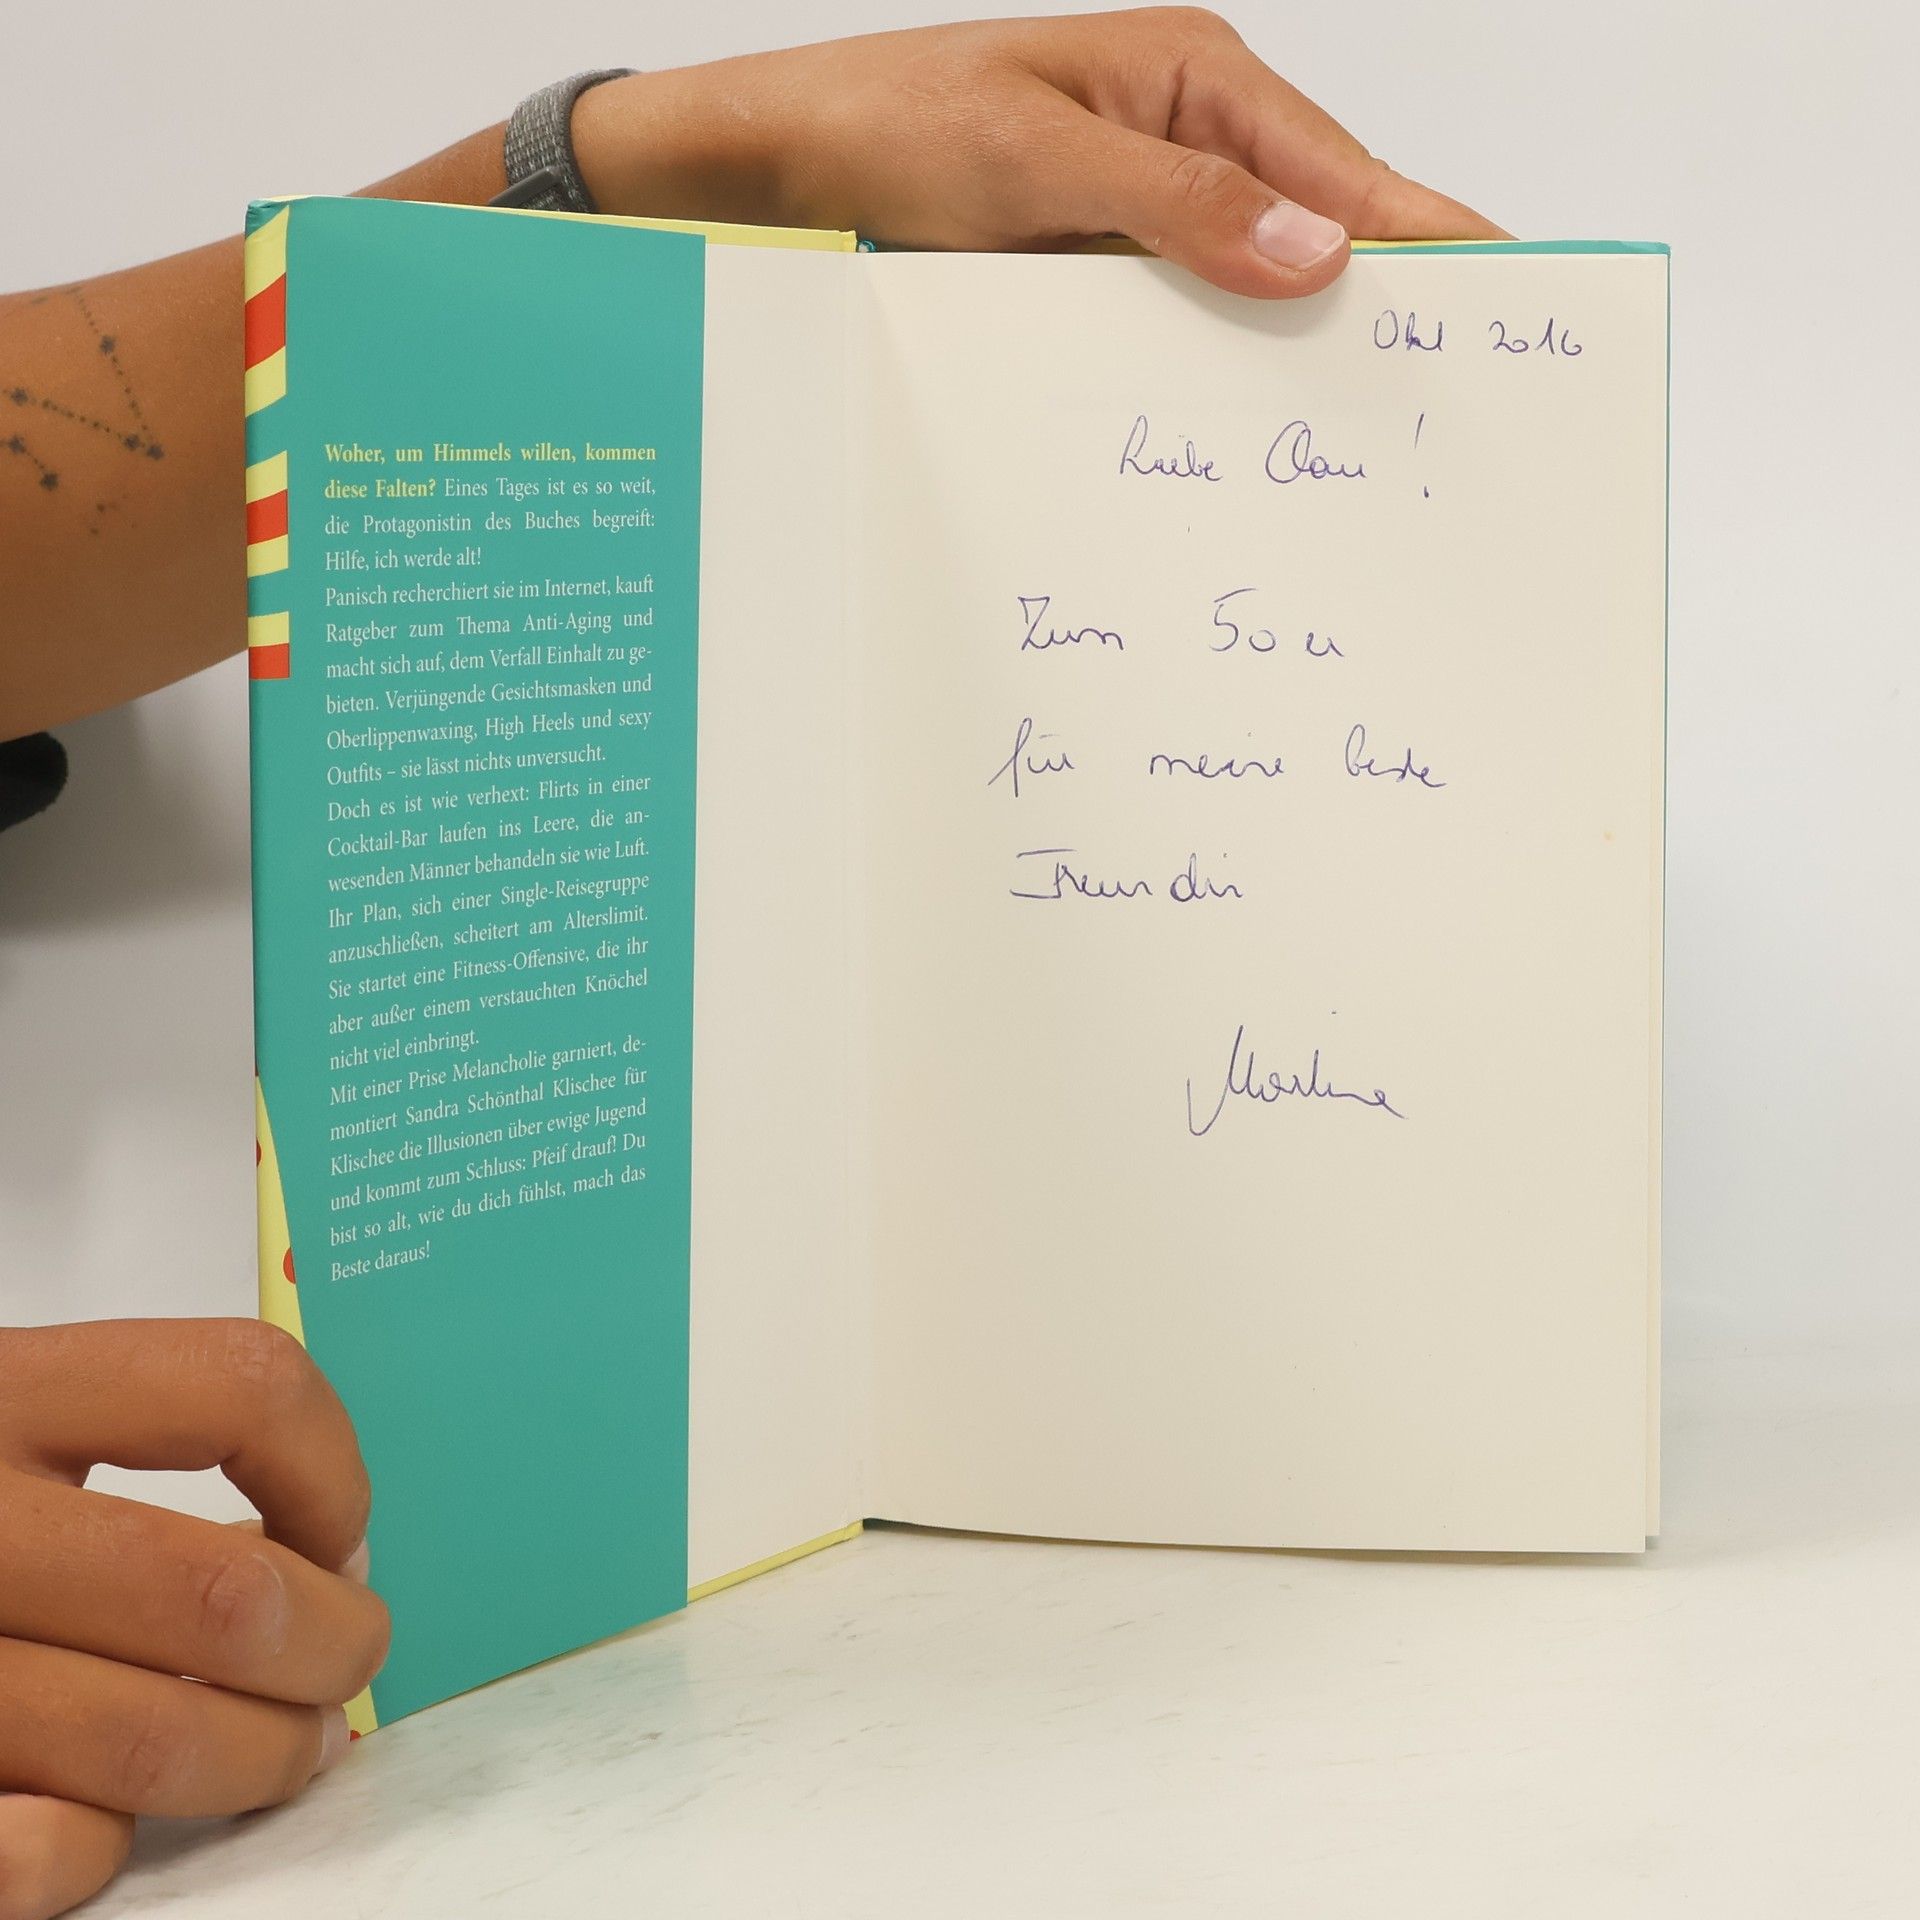 Woher, um Himmels willen, kommen
diese Falten? Eines Tages ist es so weit,
die Protagonistin des Buches begreift:
Hilfe, ich werde alt!
Panisch recherchiert sie im Internet, kauft
Ratgeber zum Thema Anti-Aging und
macht sich auf, dem Verfall Einhalt zu ge-
bieten. Verjüngende Gesichtsmasken und
Oberlippenwaxing, High Heels und sexy
Outfits – sie lässt nichts unversucht.
Doch es ist wie verhext: Flirts in einer
Cocktail-Bar laufen ins Leere, die an-
wesenden Männer behandeln sie wie Luft.
Ihr Plan, sich einer Single-Reisegruppe
anzuschließen, scheitert am Alterslimit.
Sie startet eine Fitness-Offensive, die ihr
aber außer einem verstauchten Knöchel
nicht viel einbringt.
Mit einer Prise Melancholie garniert, de-
montiert Sandra Schönthal Klischee für
Klischee die Illusionen über ewige Jugend
und kommt zum Schluss: Pfeif drauf! Du
bist so alt, wie du dich fühlst, mach das
Beste daraus!
Okt 2016
Liebe !
Zum 50er
für meine beste
Freundin
Martina